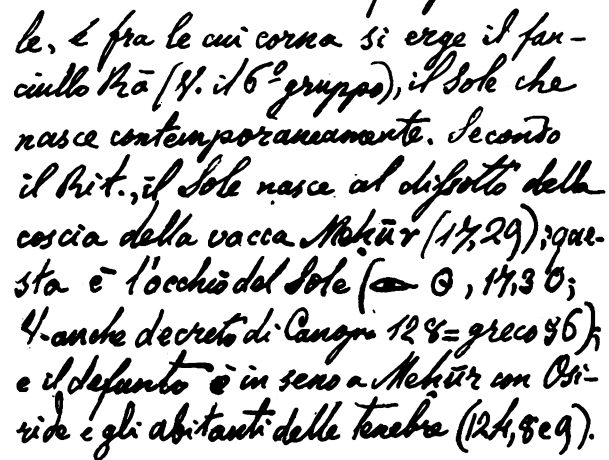 le, e fra le cui corna si erge il fan-
ciullo Rā (V. il 6º gruppo), il Sole che
nasce contemporaneamente. Secondo
il Rit., il Sole nasce al disotto della
coscia della vacca Mehūr (17,29); que-
sta è l'occhio del Sole (𓁹 ʘ, 17,30;
V. anche decreto di Canopo 128 = greco 36);
e il defunto è in seno a Mehūr con Osi-
ride e gli abitanti delle tenebre (124, 8 e 9).